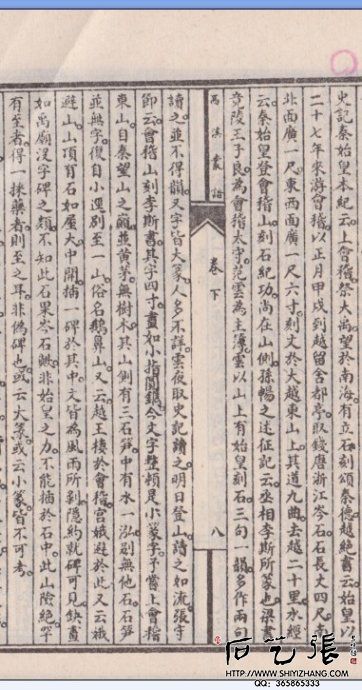 史記秦始皇本紀云上會稽祭大禹望於南海有立石刻頌秦德越絕書云始皇以
二十七年來游會稽以正月甲戌到越留舍都亭取錢唐浙江岑石石長丈四尺南
北面廣一尺東西面廣一尺六寸刻文於大越東山上其道九曲去越二十里水經
云秦始皇登會稽山刻石紀功尚在山側孫暢之述征記云丞相李斯所篆也梁書
竟陵王子良為會稽太守范雲為主簿雲以山上有始皇刻石三句一韻多作兩句
禹溪叢話
卷下
八
讀之並不得韻又字皆大篆人多不詳雲夜取史記讀之明日登山讀之如流張守
節云會稽山刻李斯書其字四寸畫如小指圓鐫今文字整頓是小篆字予嘗上會稽
東山自秦望山之巔並黃茅無樹木其山側有三石笋中有水一泓別無他石石笋
並無字復自小逕別至一山俗名鵝鼻山又云越王棲於會稽宮娥避於此又云娥
避山山頂有石如屋大中開插一碑於其中文皆為風雨所剝隱約就碑可見缺畫
如禹廟沒字碑之類不知此石果岑石歟非始皇之力不能插於石中此山險絕罕
有至者得一採藥者則至之耳非偽碑也或云大篆或云小篆皆不可考
石艺張
WWW.SHIYIZHANG.COM
QQ: 365865333